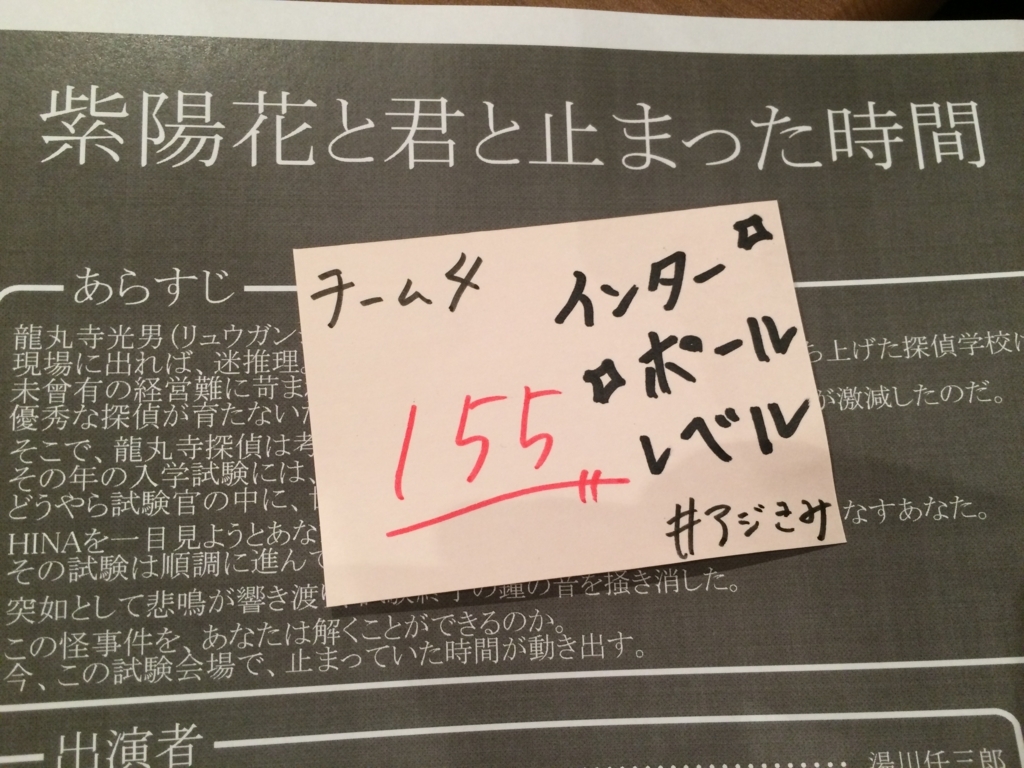 紫陽花と君と止まった時間
あらすじ
龍丸寺光男(リュウガン
現場に出れば、迷推理。 ち上げた探偵学校は
未曾有の経営難に苛ま
優秀な探偵が育たないた が激減したのだ。
そこで、龍丸寺探偵は考
その年の入学試験には、
どうやら試験官の中に、 なすあなた。
HINAを一目見ようとあな
その試験は順調に進んで
突如として悲鳴が響き渡り、 の鐘の音を掻き消した。
この怪事件を、あなたは解くことができるのか。
今、この試験会場で、止まっていた時間が動き出す。
出演者
湯川任三郎
チーム4
155
インター
ポール
レベル
#アジきみ